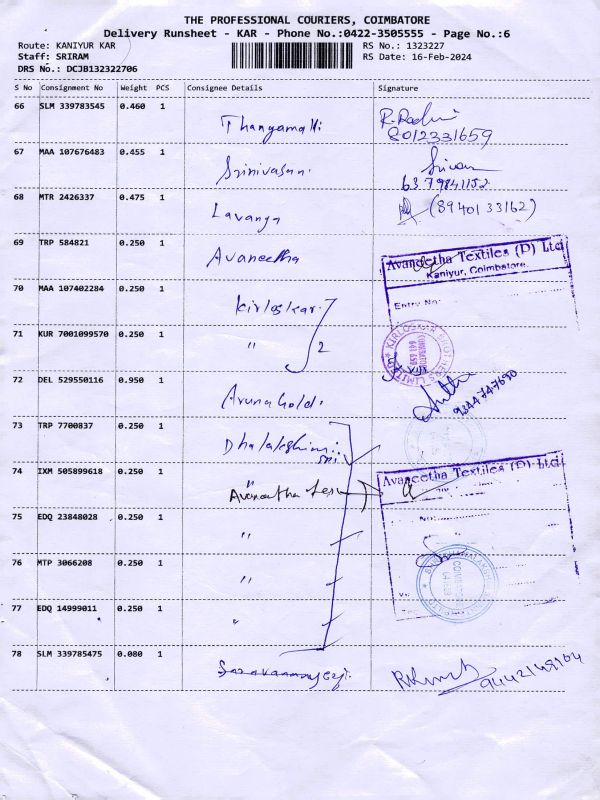 THE PROFESSIONAL COURIERS, COIMBATORE
Delivery Runsheet - KAR - Phone No.:0422-3505555 - Page No.:6
Route: KANIYUR KAR RS No.: 1323227
Staff: SRIRAM RS Date: 16-Feb-2024
DRS No.: DCJB132322706
S No Consignment No Weight PCS Consignee Details Signature
66 SLM 339783545 0.460 1
Thangamani R.
8012331659
67 MAA 107676483 0.455 1
Srinivasan
6379841152
68 MTR 2426337 0.475 1
Lavanya (8940133162)
69 TRP 584821 0.250 1
Avaneetha
Avaneetha Textiles (P) Ltd
Kaniyur, Coimbatore.
Entry No:
70 MAA 107402284 0.250 1
Kirloskar
71 KUR 7001099570 0.250 1
" 2
KIRLOSKAR BROTHERS LIMITED
72 DEL 529550116 0.950 1
9344747690
73 TRP 7700837 0.250 1
74 IXM 505899618 0.250 1
"
Avaneetha Tex
Avaneetha Textiles (P) Ltd
75 EDQ 23848028 0.250 1
"
76 MTP 3066208 0.250 1
"
77 EDQ 14999011 0.250 1
"
78 SLM 339785475 0.080 1